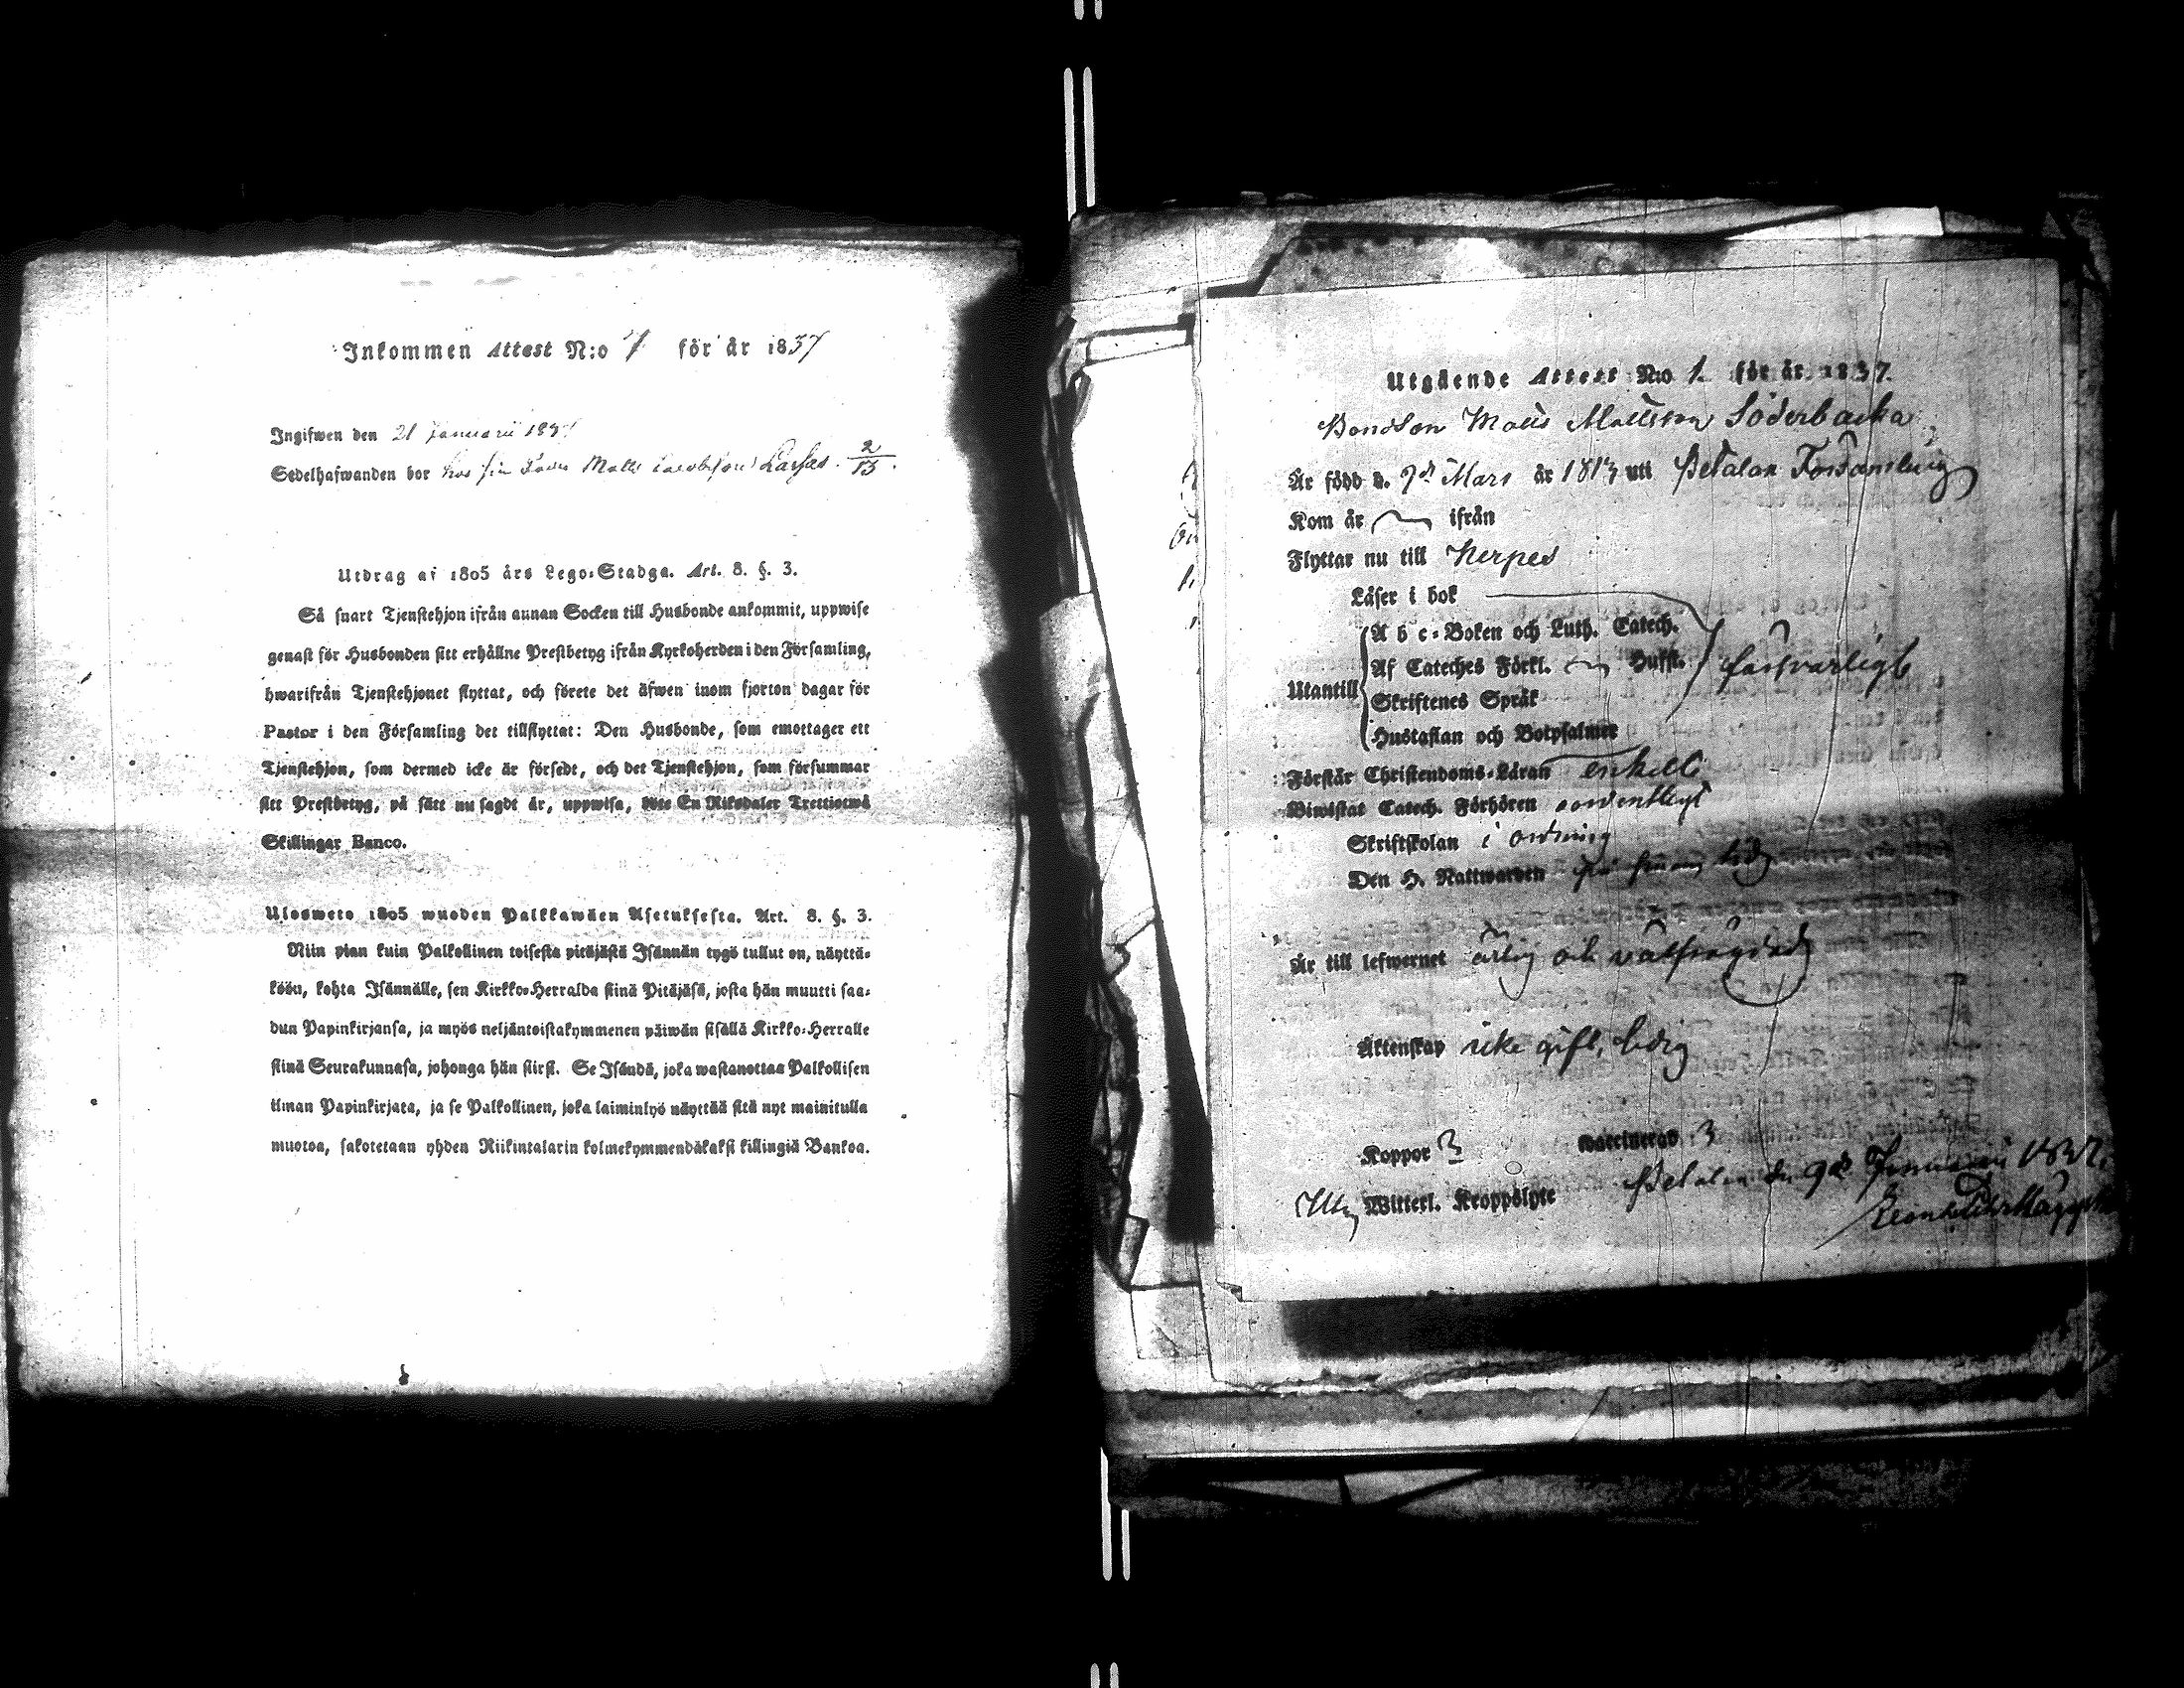 Inkommen Attest N:o 7 för år 1837
Ingifwen den 21 Januarii 1837
Sedelhafwanden bor hos sin Matts Jacobsson Larfas. 2/13.
Utdrag af 1805 års Lego-Stadga. Art. 8. §. 3.
Så snart Tjenstehjon ifrån annan Socken till Husbonde ankommit, uppwise
genast för Husbonden sitt erhållne Prestbetyg ifrån Kyrkoherden i den Församling,
hwarifrån Tjenstehjonet flyttat, och förete det äfwen inom fjorton dagar för
Pastor i den Församling det tillflyttat: Den Husbonde, som emottager ett
Tjenstehjon, som dermed icke är försedt, och det Tjenstehjon, som försummar
sitt Prestbetyg, på sätt nu sagdt är, uppwisa, böte En Riksdaler Trettiotwå
Skillingar Banco.
Ulosweto 1805 wuoden Palkkawäen Asetuksesta. Art. 8. §. 3.
Niin pian kuin Palkollinen toisesta pitäjästä Isännän tygö tullut on, näyttä-
köön, kohta Isännälle, sen Kirkko-Herralda siinä Pitäjäsä, josta hän muutti saa-
dun Papinkirjansa, ja myös neljäntoistakymmenen päiwän sisällä Kirkko-Herralle
siinä Seurakunnasa, johonga hän siirsi. Se Isändä, joka wastanottaa Palkollisen
ilman Papinkirjata, ja se Palkollinen, joka laiminlyö näyttää sitä nyt mainitulla
muotoa, sakotetaan yhden Riikintalarin kolmekymmendäkaksi killingiä Bankoa.
Utgående Attest N:o 1. för år 1837.
Bondson Matts Mattsson Söderbacka
Är född d. 7de Mars år 1813 uti Petalax Församling
Kom år ifrån
Flyttar nu till Nerpes
Läser i bok
Utantill
A b c-Boken och Luth. Catech.
Af Cateches Förkl. Husst. försvarligt
Skriftenes Språk
Hustaflan och Botpsalmer
Förstår Christendoms-Läran enkelt
Biwistat Catech. Förhören ordentligt
Skriftskolan i ordning
Den H. Nattwarden på sin tid
Är till lefwernet ärlig och välfrägdad
Äktenskap icke gift, ledig
Koppor Vaccinerad
Witterl. Kroppslyte Petalax den 9de Januarii 1837.